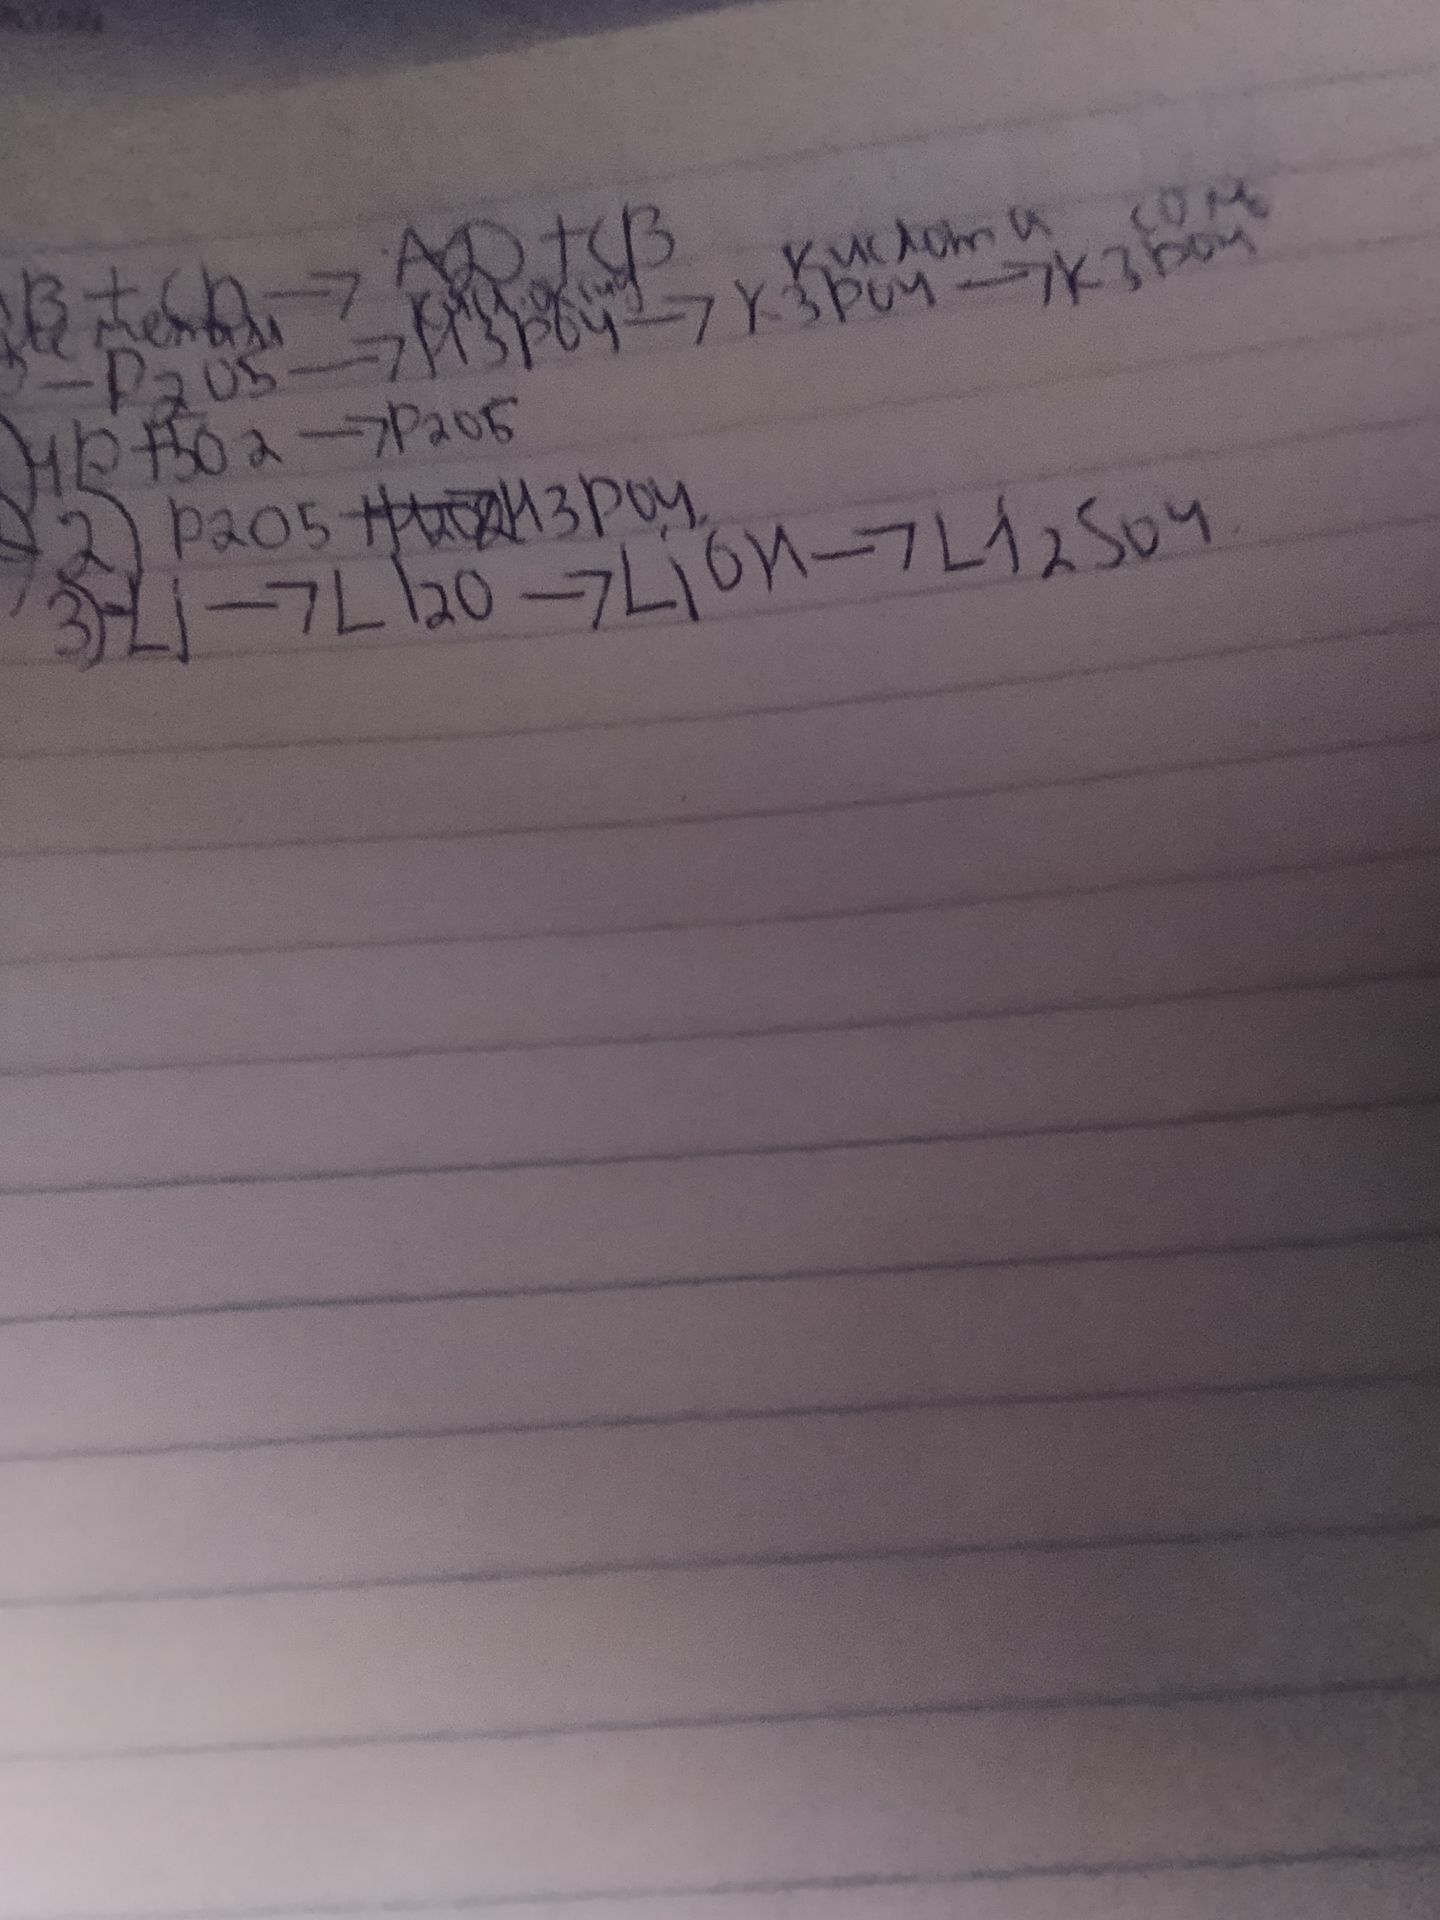 B + CD → AD + CB
кислота соль
P2O5 → H3PO4 → K3PO4 → K3PO4
4P + 5O2 → P2O5
2) P2O5 H3PO4
3) Li → Li2O → LiOH → Li2SO4